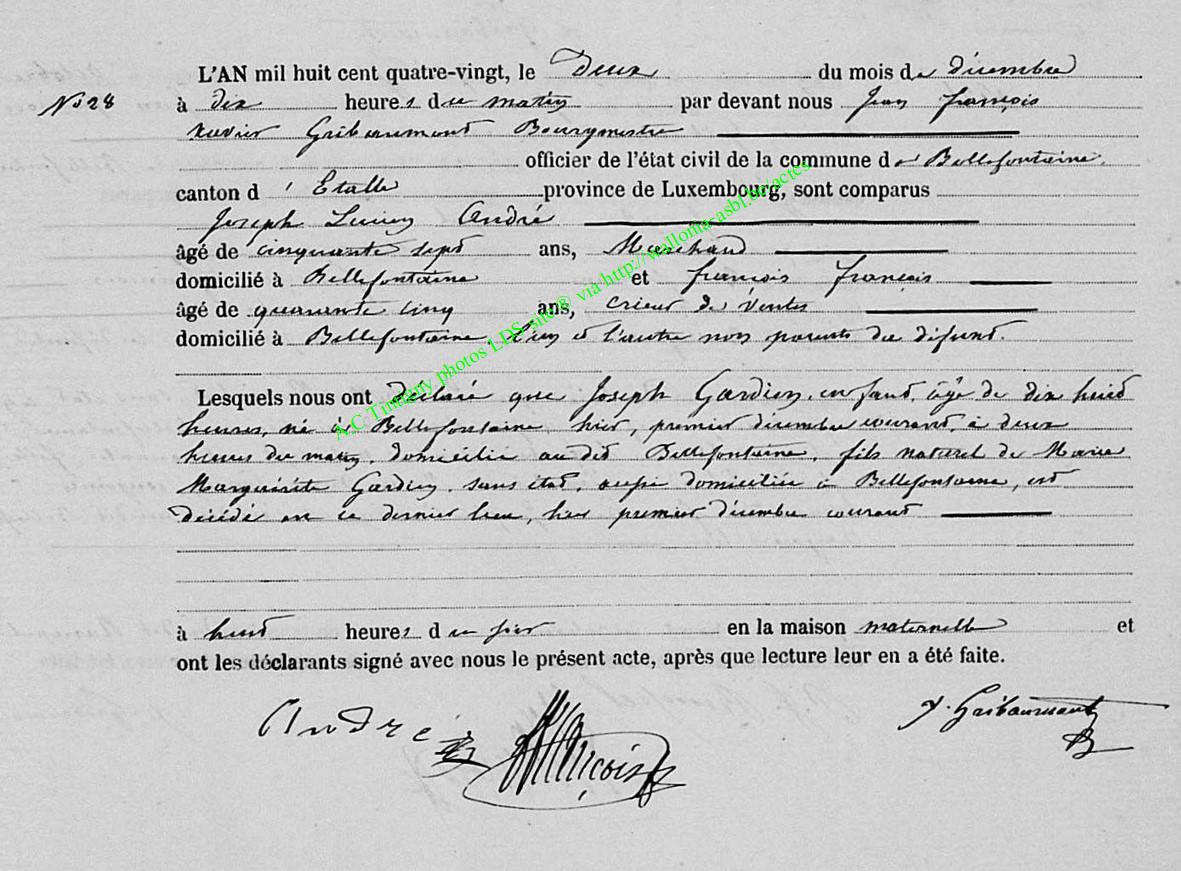 L'AN mil huit cent quatre-vingt, le Deux du mois de décembre
No 28 à dix heures du matin par devant nous Jean françois
xavier Gribaumont Bourgmestre
officier de l'état civil de la commune de Bellefontaine,
canton d'Etalle province de Luxembourg, sont comparus
Joseph Lucien André
âgé de cinquante sept ans, Marchand
domicilié à Bellefontaine et françois françois
âgé de quarante cinq ans, crieur de ventes
domicilié à Bellefontaine, l'un et l'autre non parents du défunt.
Lesquels nous ont déclaré que Joseph Gardien, enfant, âgé de dix huit
heures, né à Bellefontaine, hier, premier décembre courant, à deux
heures du matin, domicilié au dit Bellefontaine, fils naturel de Marie
Marguerite Gardien, sans état, aussi domiciliée à Bellefontaine, est
décédé en ce dernier lieu, hier premier décembre courant
à huit heures du soir en la maison maternelle et
ont les déclarants signé avec nous le présent acte, après que lecture leur en a été faite.
André françois X. Gribaumont
A.C Tintigny photos LDS site ® via http://wallonia-asbl.be/actes